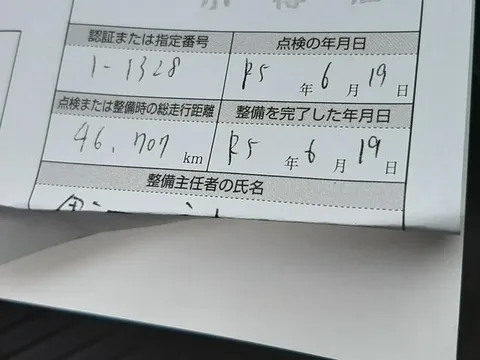 認証または指定番号 点検の年月日
1-1328 R5年6月19日
点検または整備時の総走行距離 整備を完了した年月日
46,707 km R5年6月19日
整備主任者の氏名